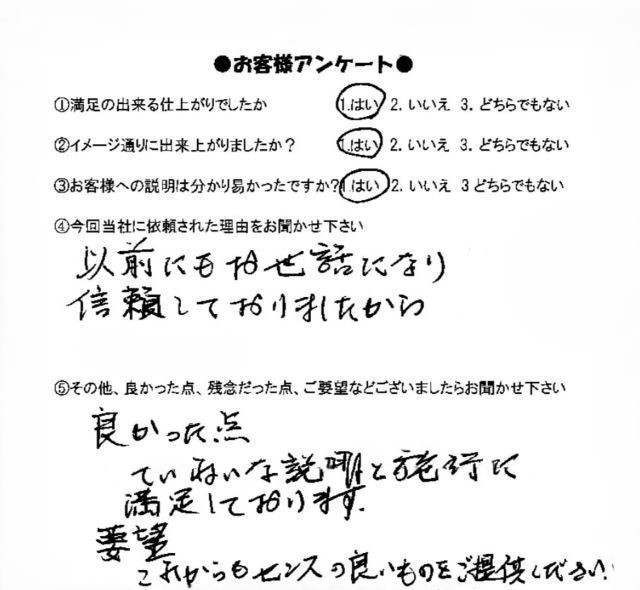 ●お客様アンケート●
①満足の出来る仕上がりでしたか 1.はい 2. いいえ 3. どちらでもない
②イメージ通りに出来上がりましたか？ 1.はい 2. いいえ 3. どちらでもない
③お客様への説明は分かり易かったですか？ 1.はい 2. いいえ 3 どちらでもない
④今回当社に依頼された理由をお聞かせ下さい
以前にもお世話になり
信頼しておりましたから
⑤その他、良かった点、残念だった点、ご要望などございましたらお聞かせ下さい
良かった点
ていねいな説明と施行に
満足しております.
要望
これからもセンスの良いものをご提供ください